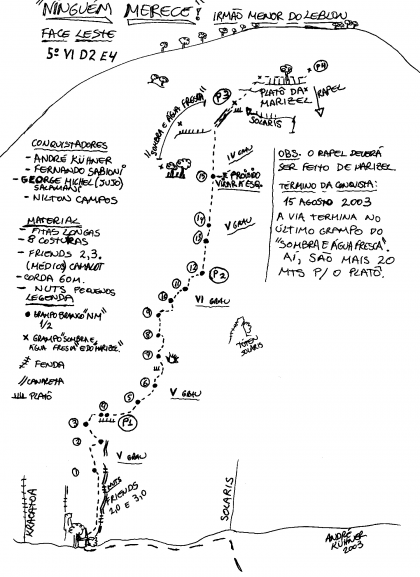 "NINGUÉM MERECE"!
IRMÃO MENOR DO LEBLON
FACE LESTE
5º VI D2 E4
P4
PLATÔ DA MARIZEL
RAPEL
P3
SOLARIS
"SOMBRA E ÁGUA FRESCA"
CONQUISTADORES
- ANDRÉ KÜHNER
- FERNANDO SABIONI
- GEORGE MICHEL (JUJO)
SALAMANI
- NILTON CAMPOS
MATERIAL
- FITAS LONGAS
- 8 COSTURAS
- FRIENDS 2, 3.
(MÉDIOS) CAMALOT
- CORDA 60M.
- NUTS PEQUENOS
LEGENDA
GRAMPO BRANCO "NM"
1/2
X GRAMPO "SOMBRA E
ÁGUA FRESCA" E DO MARIZEL.
FENDA
CANALETA
PLATÔ
OBS. O RAPEL DEVERÁ
SER FEITO DE MARIZEL.
TÉRMINO DA CONQUISTA:
15 AGOSTO 2003
A VIA TERMINA NO
ÚLTIMO GRAMPO DO
"SOMBRA E ÁGUA FRESCA".
AÍ, SÃO MAIS 20
MTS P/ O PLATÔ.
IV GRAU
15
PROIBIDO
VIRAR A ESQ.
14
V GRAU
13
12
P2
11
10
VI GRAU
9
8
TÓTEN
SOLARIS
7
6
V GRAU
5
4
3
P1
2
V GRAU
1
NUTS
FRIENDS
2.0 E 3.0
KRAKATOA
SOLARIS
ANDRÉ
KÜHNER
2003